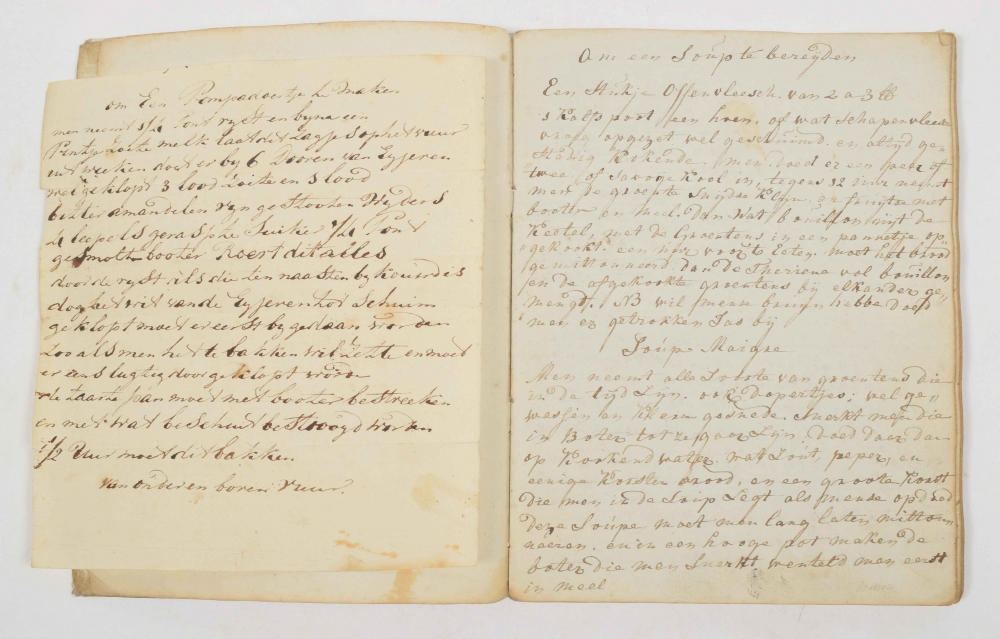 om Een Pompadoertje te maken
men neemt 1/4 pont ryst en byna een
Pintje Zoite melk laat dit Zagjes op het vuur
uit weeken doet er by 6 Dooren van Eyjeren
wel geklopt 3 lood Zoite en 1 lood
bittere amandelen fyn gestooten Wyders
4 leepels geraspte Suiker 1/4 Pont
gesmolte booter Roert dit alles
door de ryst als die ten naasten by koud is
dog het wit van de Eyjeren tot Schuim
geklopt moet er eerst by gedaan worden
Zoo als men het te bakken wil Zette en moet
er eens lugtig door geklopt worden
de taarte pan moet met booter bestreeken
en met wat beschuit bestrooyd worden
1/2 Uur moet dit bakken
van onder en boven vuur.
Om een Soup te bereyden
Een Stukje Ossenvleesch van 2 a 3 lb
1 Kalfs poot een hoen, of wat schapenvleesch
vroeg opgezet wel geschuimd en altyd ge=
stadig Kokende, men doed er een peen of
twee of Savooije Kool in, tegens 12 uure neemt
men de groente Snijdse Klyn, en fruijtse met
booter en meel. Dan wat bouillon uijt de
Ketel, met de Groentens in een pannetje op
gekookt een uur voor 't Eeten, moet het brood
gemittonneerd, dan de Therriena vol bouillon
en de afgekookte groentens bij elkander ge=
mengt. NB wil mense bruijn hebbe doed
men er getrokken Jus bij
Soupe Maigre
Men neemt alle Soorte van groentens die
in de tijd Zijn, ook dopertjes; wel ge=
wassen en klein gesnede. Snerkt men die
in Boter tot ze gaar Zijn, doed daar dan
op Kookend water, wat Zout, peper, en
eenige Korsten brood, en een groote Korst
die men in de Soup Legt als mense opdoed
deze Soupe moet men lang laten mitton=
naeren, en in een hooge pot maken de
boter die men Snerkt, wenteld men eerst
in meel